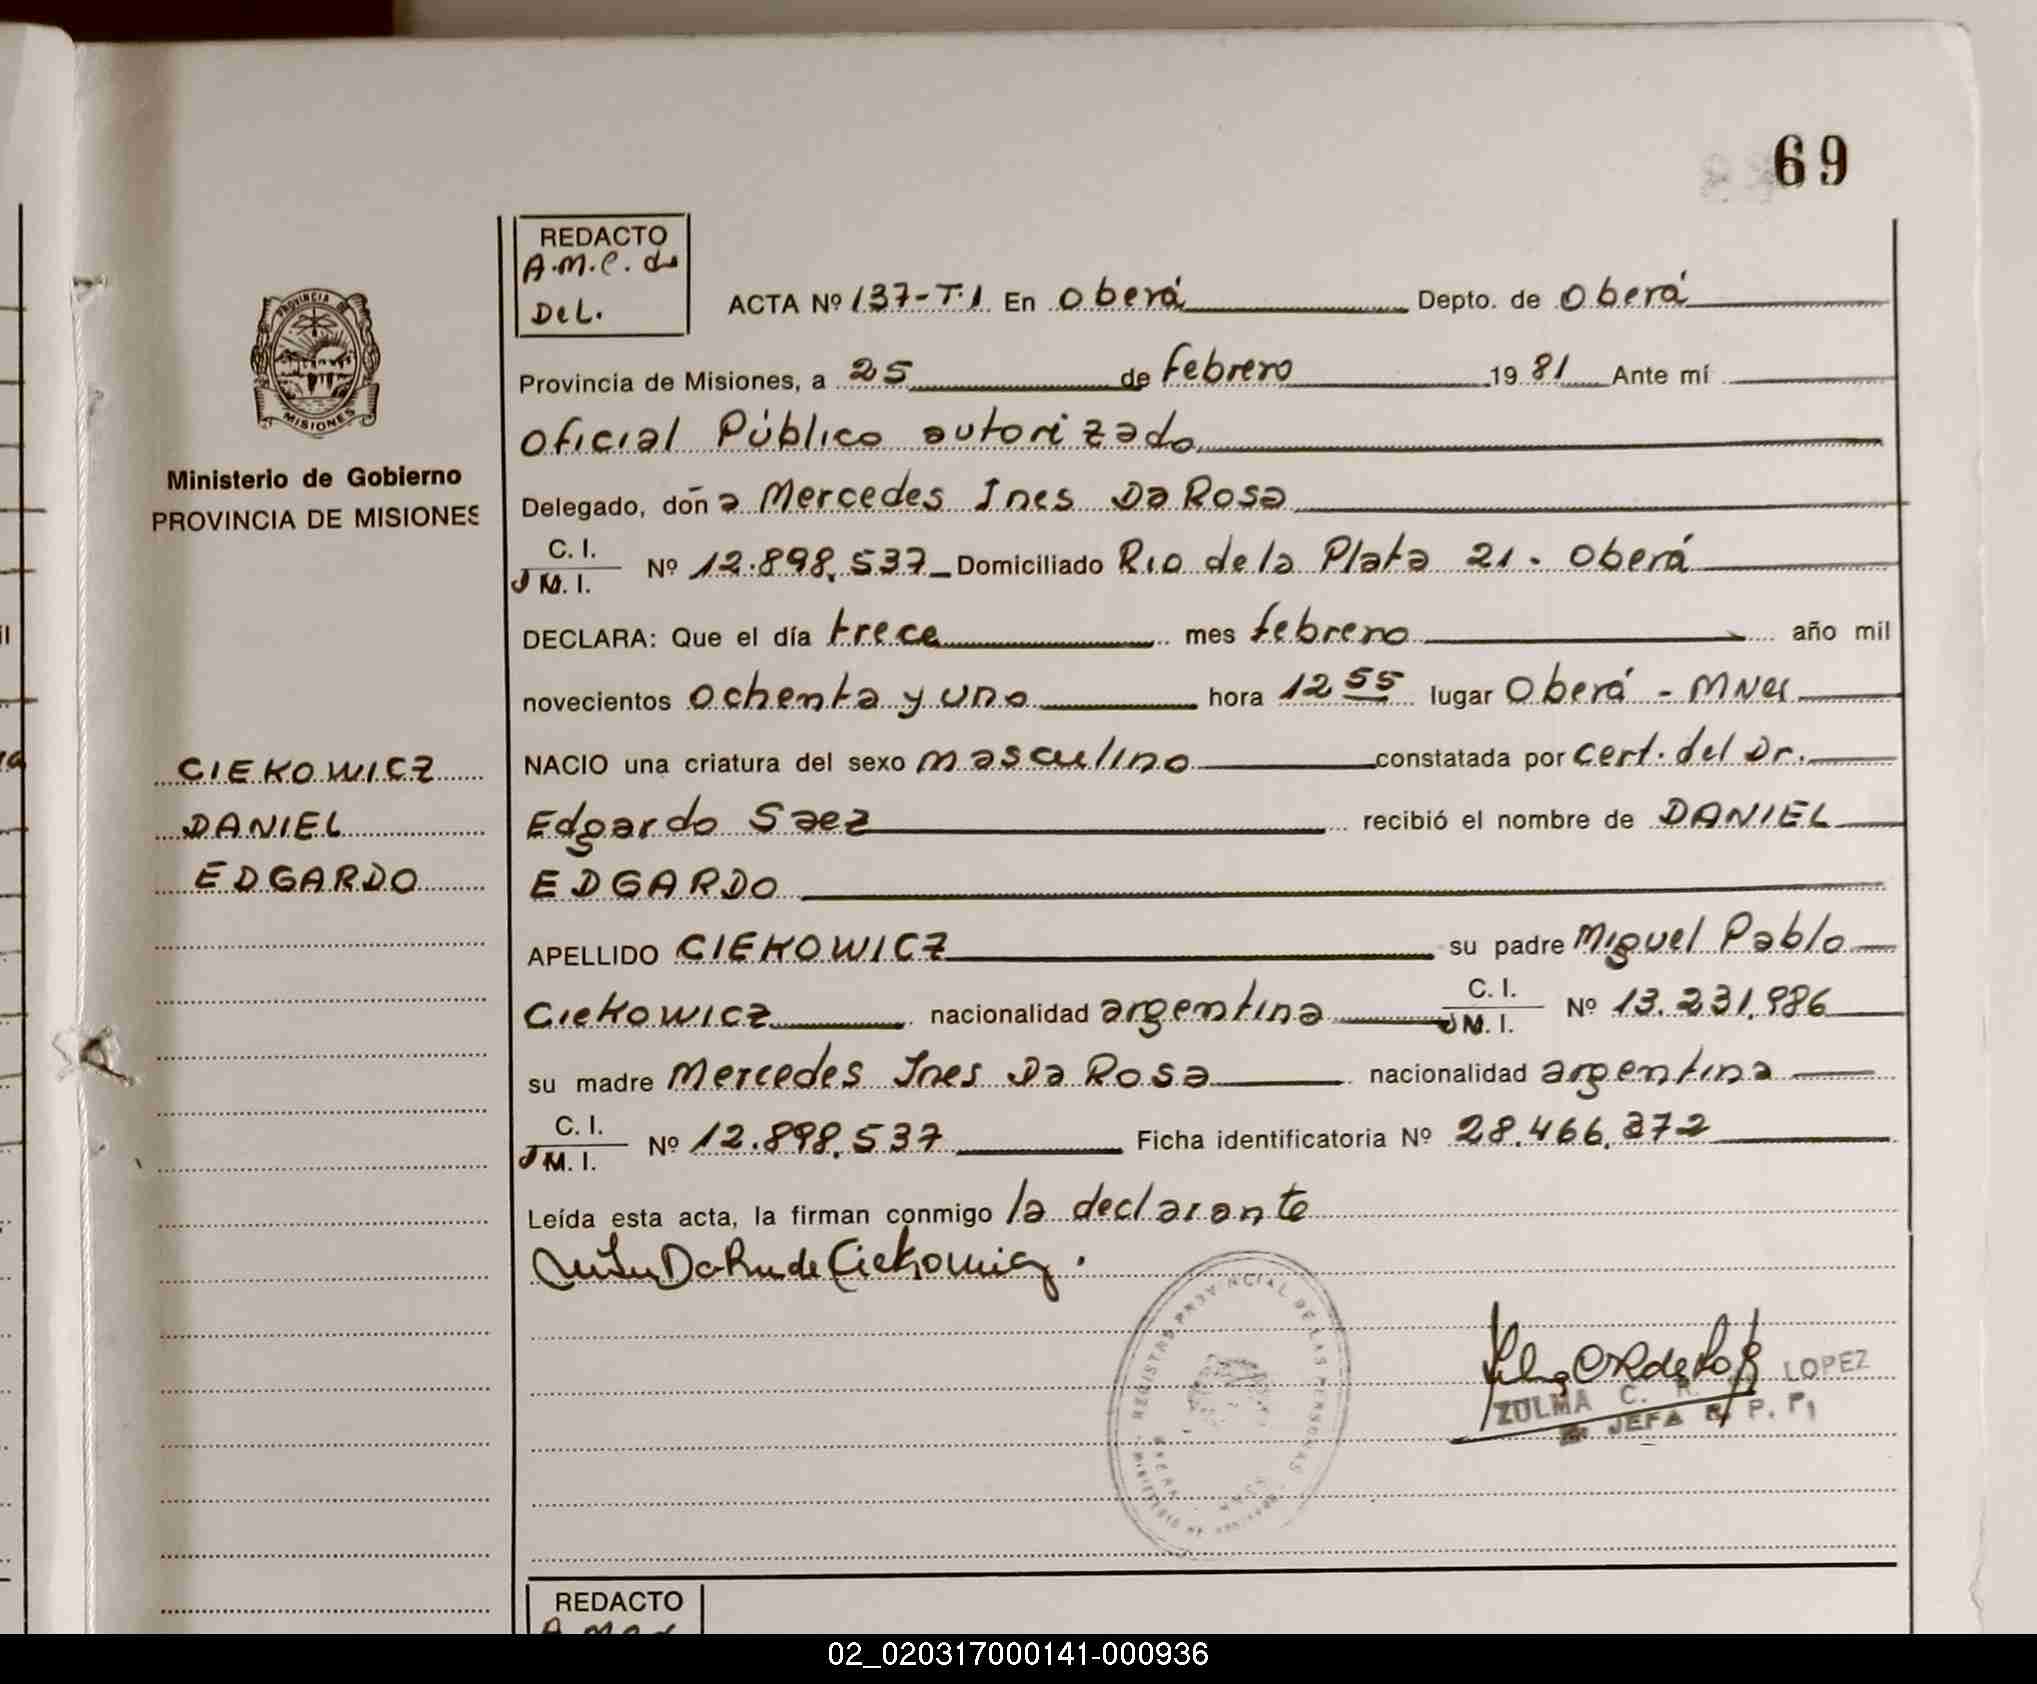 69
REDACTO
A.M.C. de
Del.
ACTA Nº 137-T.1 En Oberá Depto. de Oberá
PROVINCIA DE
MISIONES
Provincia de Misiones, a 25 de febrero 1981 Ante mí
Oficial Público autorizado
Ministerio de Gobierno
PROVINCIA DE MISIONES
Delegado, doña Mercedes Ines Da Rosa
C. I.
M. I. Nº 12.898.537 Domiciliado Rio de la Plata 21. Oberá
DECLARA: Que el día trece mes febrero año mil
novecientos ochenta y uno hora 12 55 lugar Oberá - Mnes
CIEKOWICZ
DANIEL
EDGARDO
NACIO una criatura del sexo masculino constatada por cert. del Dr.
Edgardo Saez recibió el nombre de DANIEL
EDGARDO
APELLIDO CIEKOWICZ su padre Miguel Pablo
Ciekowicz nacionalidad argentina C. I.
M. I. Nº 13.231.986
su madre Mercedes Ines Da Rosa nacionalidad argentina
C. I.
M. I. Nº 12.898.537 Ficha identificatoria Nº 28.466.372
Leída esta acta, la firman conmigo la declarante
Da de Ciekowicz.
REGISTRO PROVINCIAL DE LAS PERSONAS
ZULMA C. R. LOPEZ
JEFA R. P. P.
REDACTO
02_020317000141-000936